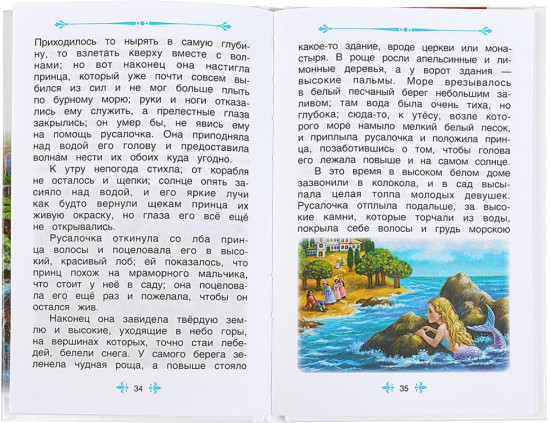 Приходилось то нырять в самую глуби-
ну, то взлетать кверху вместе с вол-
нами; но вот наконец она настигла
принца, который уже почти совсем вы-
бился из сил и не мог больше плыть
по бурному морю; руки и ноги отказа-
лись ему служить, а прелестные глаза
закрылись; он умер бы, не явись ему
на помощь русалочка. Она приподняла
над водой его голову и предоставила
волнам нести их обоих куда угодно.
К утру непогода стихла; от корабля
не осталось и щепки; солнце опять за-
сияло над водой, и его яркие лучи
как будто вернули щекам принца их
живую окраску, но глаза его всё ещё
не открывались.
Русалочка откинула со лба прин-
ца волосы и поцеловала его в высо-
кий, красивый лоб; ей показалось, что
принц похож на мраморного мальчика,
что стоит у неё в саду; она поцелова-
ла его ещё раз и пожелала, чтобы он
остался жив.
Наконец она завидела твёрдую зем-
лю и высокие, уходящие в небо горы,
на вершинах которых, точно стаи лебе-
дей, белели снега. У самого берега зе-
ленела чудная роща, а повыше стояло
34
какое-то здание, вроде церкви или мона-
стыря. В роще росли апельсинные и ли-
монные деревья, а у ворот здания —
высокие пальмы. Море врезывалось
в белый песчаный берег небольшим за-
ливом; там вода была очень тиха, но
глубока; сюда-то, к утёсу, возле кото-
рого море намыло мелкий белый песок,
и приплыла русалочка и положила прин-
ца, позаботившись о том, чтобы голова
его лежала повыше и на самом солнце.
В это время в высоком белом доме
зазвонили в колокола, и в сад высы-
пала целая толпа молодых девушек.
Русалочка отплыла подальше, за высо-
кие камни, которые торчали из воды,
покрыла себе волосы и грудь морскою
35